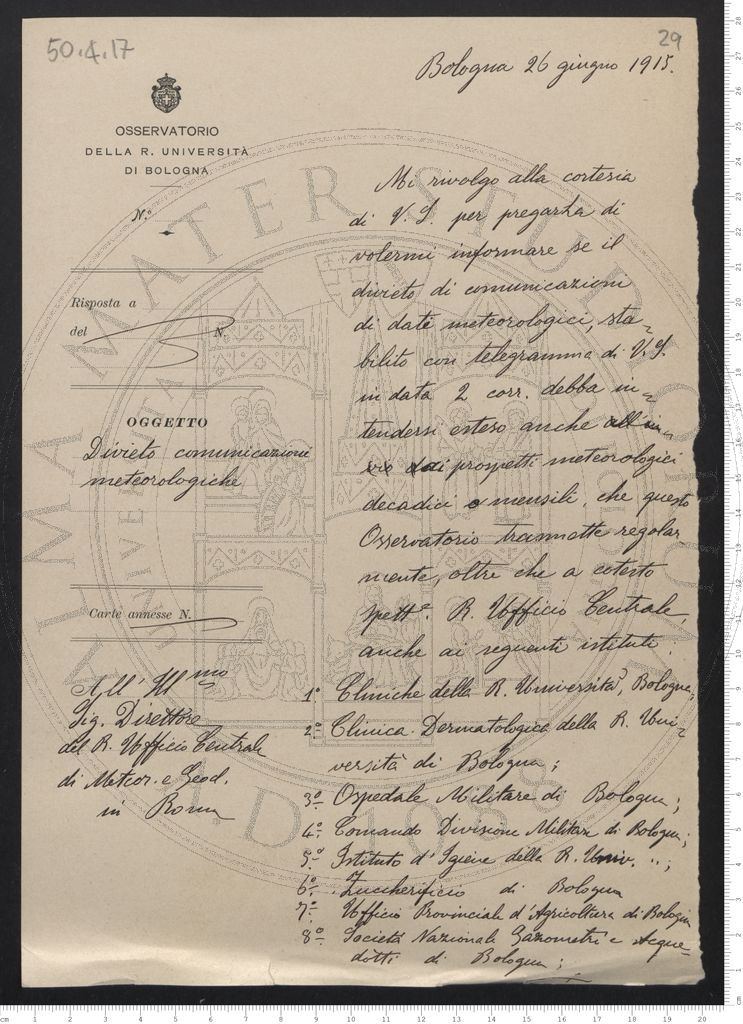 50.4.17
29
Bologna 26 giugno 1915.
OSSERVATORIO
DELLA R. UNIVERSITÀ
DI BOLOGNA
N.º
Risposta a
del N.
OGGETTO
Divieto comunicazioni
meteorologiche
Carte annesse N.
All' Ill mo
Sig. Direttore
del R. Ufficio Centrale
di Meteor. e Geod.
in Roma
Mi rivolgo alla cortesia
di V. S. per pregarla di
volermi informare se il
divieto di comunicazioni
di dati meteorologici, sta-
bilito con telegramma di V. S.
in data 2 corr. debba in-
tendersi esteso anche
prospetti meteorologici
decadici o mensili, che questo
Osservatorio trasmette regolar
mente, oltre che a cotesto
spett.e R. Ufficio Centrale,
anche ai seguenti istituti:
1º Cliniche della R. Università, Bologna;
2º Clinica Dermatologica della R. Uni-
versità di Bologna;
3º Ospedale Militare di Bologna;
4º Comando Divisione Militare di Bologna;
5º Istituto d'Igiene della R. Univ. ";
6º Zuccherificio di Bologna
7º Ufficio Provinciale d'Agricoltura di Bologna
8º Società Nazionale Gazometri e Acque-
dotti di Bologna;
ALMA MATER STUDIORUM
A.D. 1088